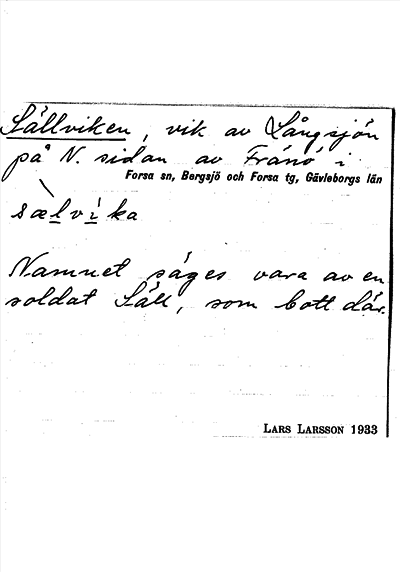 Sällviken, vik av Långsjön
på N. sidan av Frånö i
Forsa sn, Bergsjö och Forsa tg, Gävleborgs län
sælvika
Namnet säges vara av en
soldat Säll, som bott där.
LARS LARSSON 1933